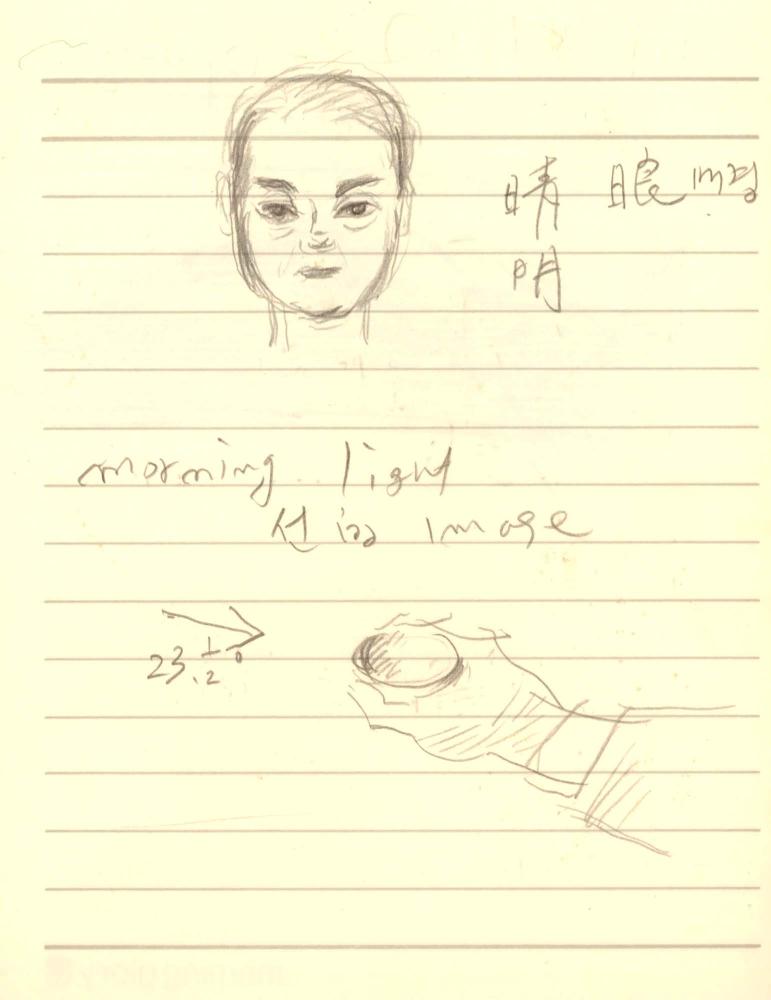 晴 眼
明
morning light
선 image
23.½°